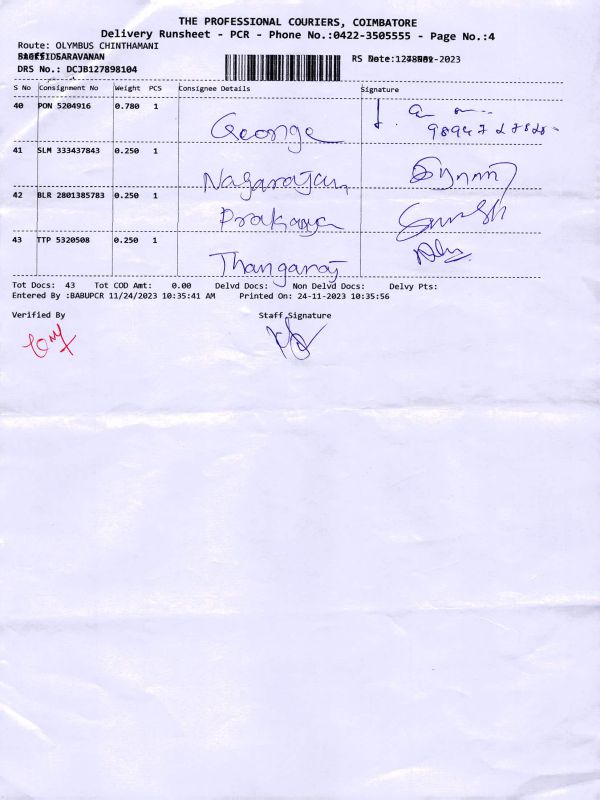 THE PROFESSIONAL COURIERS, COIMBATORE
Delivery Runsheet - PCR - Phone No.:0422-3505555 - Page No.:4
Route: OLYMBUS CHINTHAMANI
SARAVANAN
RS Date: -2023
DRS No.: DCJB127898104
S No Consignment No Weight PCS Consignee Details Signature
40 PON 5204916 0.780 1 George
41 SLM 333437843 0.250 1 Nagarajan
42 BLR 2801385783 0.250 1 Prakasya
43 TTP 5320508 0.250 1 Thangaraj
Tot Docs: 43 Tot COD Amt: 0.00 Delvd Docs: Non Delvd Docs: Delvy Pts:
Entered By :BABUPCR 11/24/2023 10:35:41 AM Printed On: 24-11-2023 10:35:56
Verified By Staff Signature